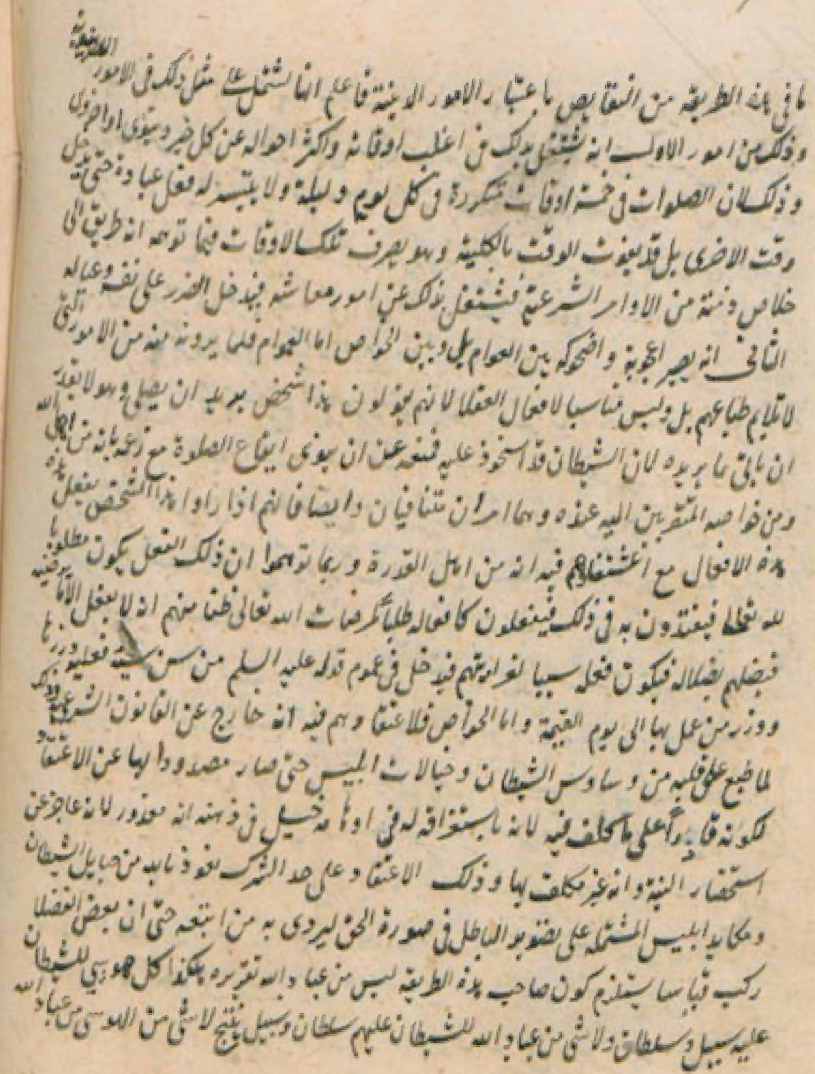 ما في هذه الطريقة من النقايص باعتبار الامور الدينية فاعلم انها تشتمل على مثل ذلك في الامور الدنيوية
وذلك من امور الاول انه يشتغل بذلك في اغلب اوقاته واكثر احواله عن كل خير دنيوي او اخروي
وذلك لان الصلوات في خمسة اوقات متكررة في كل يوم وليلة ولا يتيسر له فعل عبادة حتى يدخل
وقت الاخرى بل قد يفوت الوقت بالكلية وهو يصرف تلك الاوقات فيما توهمه انه طريق الى
خلاص ذمته من الاوامر الشرعية فيشتغل بذلك عن امور معاشه فيدخل الضرر على نفسه وعياله
الثاني انه يصير اعجوبة واضحوكة بين العوام بل وبين الخواص اما العوام فلما يرونه منه من الامور التي
لا تلايم طباعهم بل وليس مناسبا لافعال العقلا لانهم يقولون هذا شخص يريد ان يصلي وهو لا يقدر
ان ياتي بما يريده لان الشيطان قد استحوذ عليه فمنعه عن ان ينوي ايقاع الصلوة مع زعمه بانه من اهل الله
ومن خواصه المتقربين اليه عنده وهما امران متنافيان وايضا فانهم اذا راوا هذا الشخص يفعل هذه
هذه الافعال مع اعتقادهم فيه انه من اهل القدرة وربما توهموا ان ذلك الفعل يكون مطلوبا
لله تعالى فيقتدون به في ذلك فيفعلون كافعاله طلبا لمرضات الله تعالى ظنا منهم انه لا يفعل الا ما يرضيه
فيضلهم بضلاله فيكون فعله سببا لغوايتهم فيدخل في عموم قوله عليه السلم من سن سيئة فعليه وزرها
ووزر من عمل بها الى يوم القيمة واما الخواص فلاعتقادهم فيه انه خارج عن القانون الشرعي وذلك
لما ضيع على قلبه من وساوس الشيطان وخيالات ابليس حتى صار مصدودا بها عن الاعتقاد
لكونه قادرا على ما كلف فيه لانه باستغراقه في اوهامه خيل في ذهنه انه معذور لانه عاجز عن
استحضار النية وانه غير مكلف بها وذلك الاعتقاد على حد الشرك نعوذ بالله من حبايل الشيطان
ومكايد ابليس المشتملة على تصوير الباطل في صورة الحق ليردي به من اتبعه حتى ان بعض الفضلا
ركب قياسا يستلزم كون صاحب هذه الطريقة ليس من عباد الله تقريره هكذا كل موسوس للشيطان
عليه سبيل وسلطان ولا شي من عباد الله للشيطان عليهم سلطان وسبيل ينتج لا شي من الموسوس من عباد الله